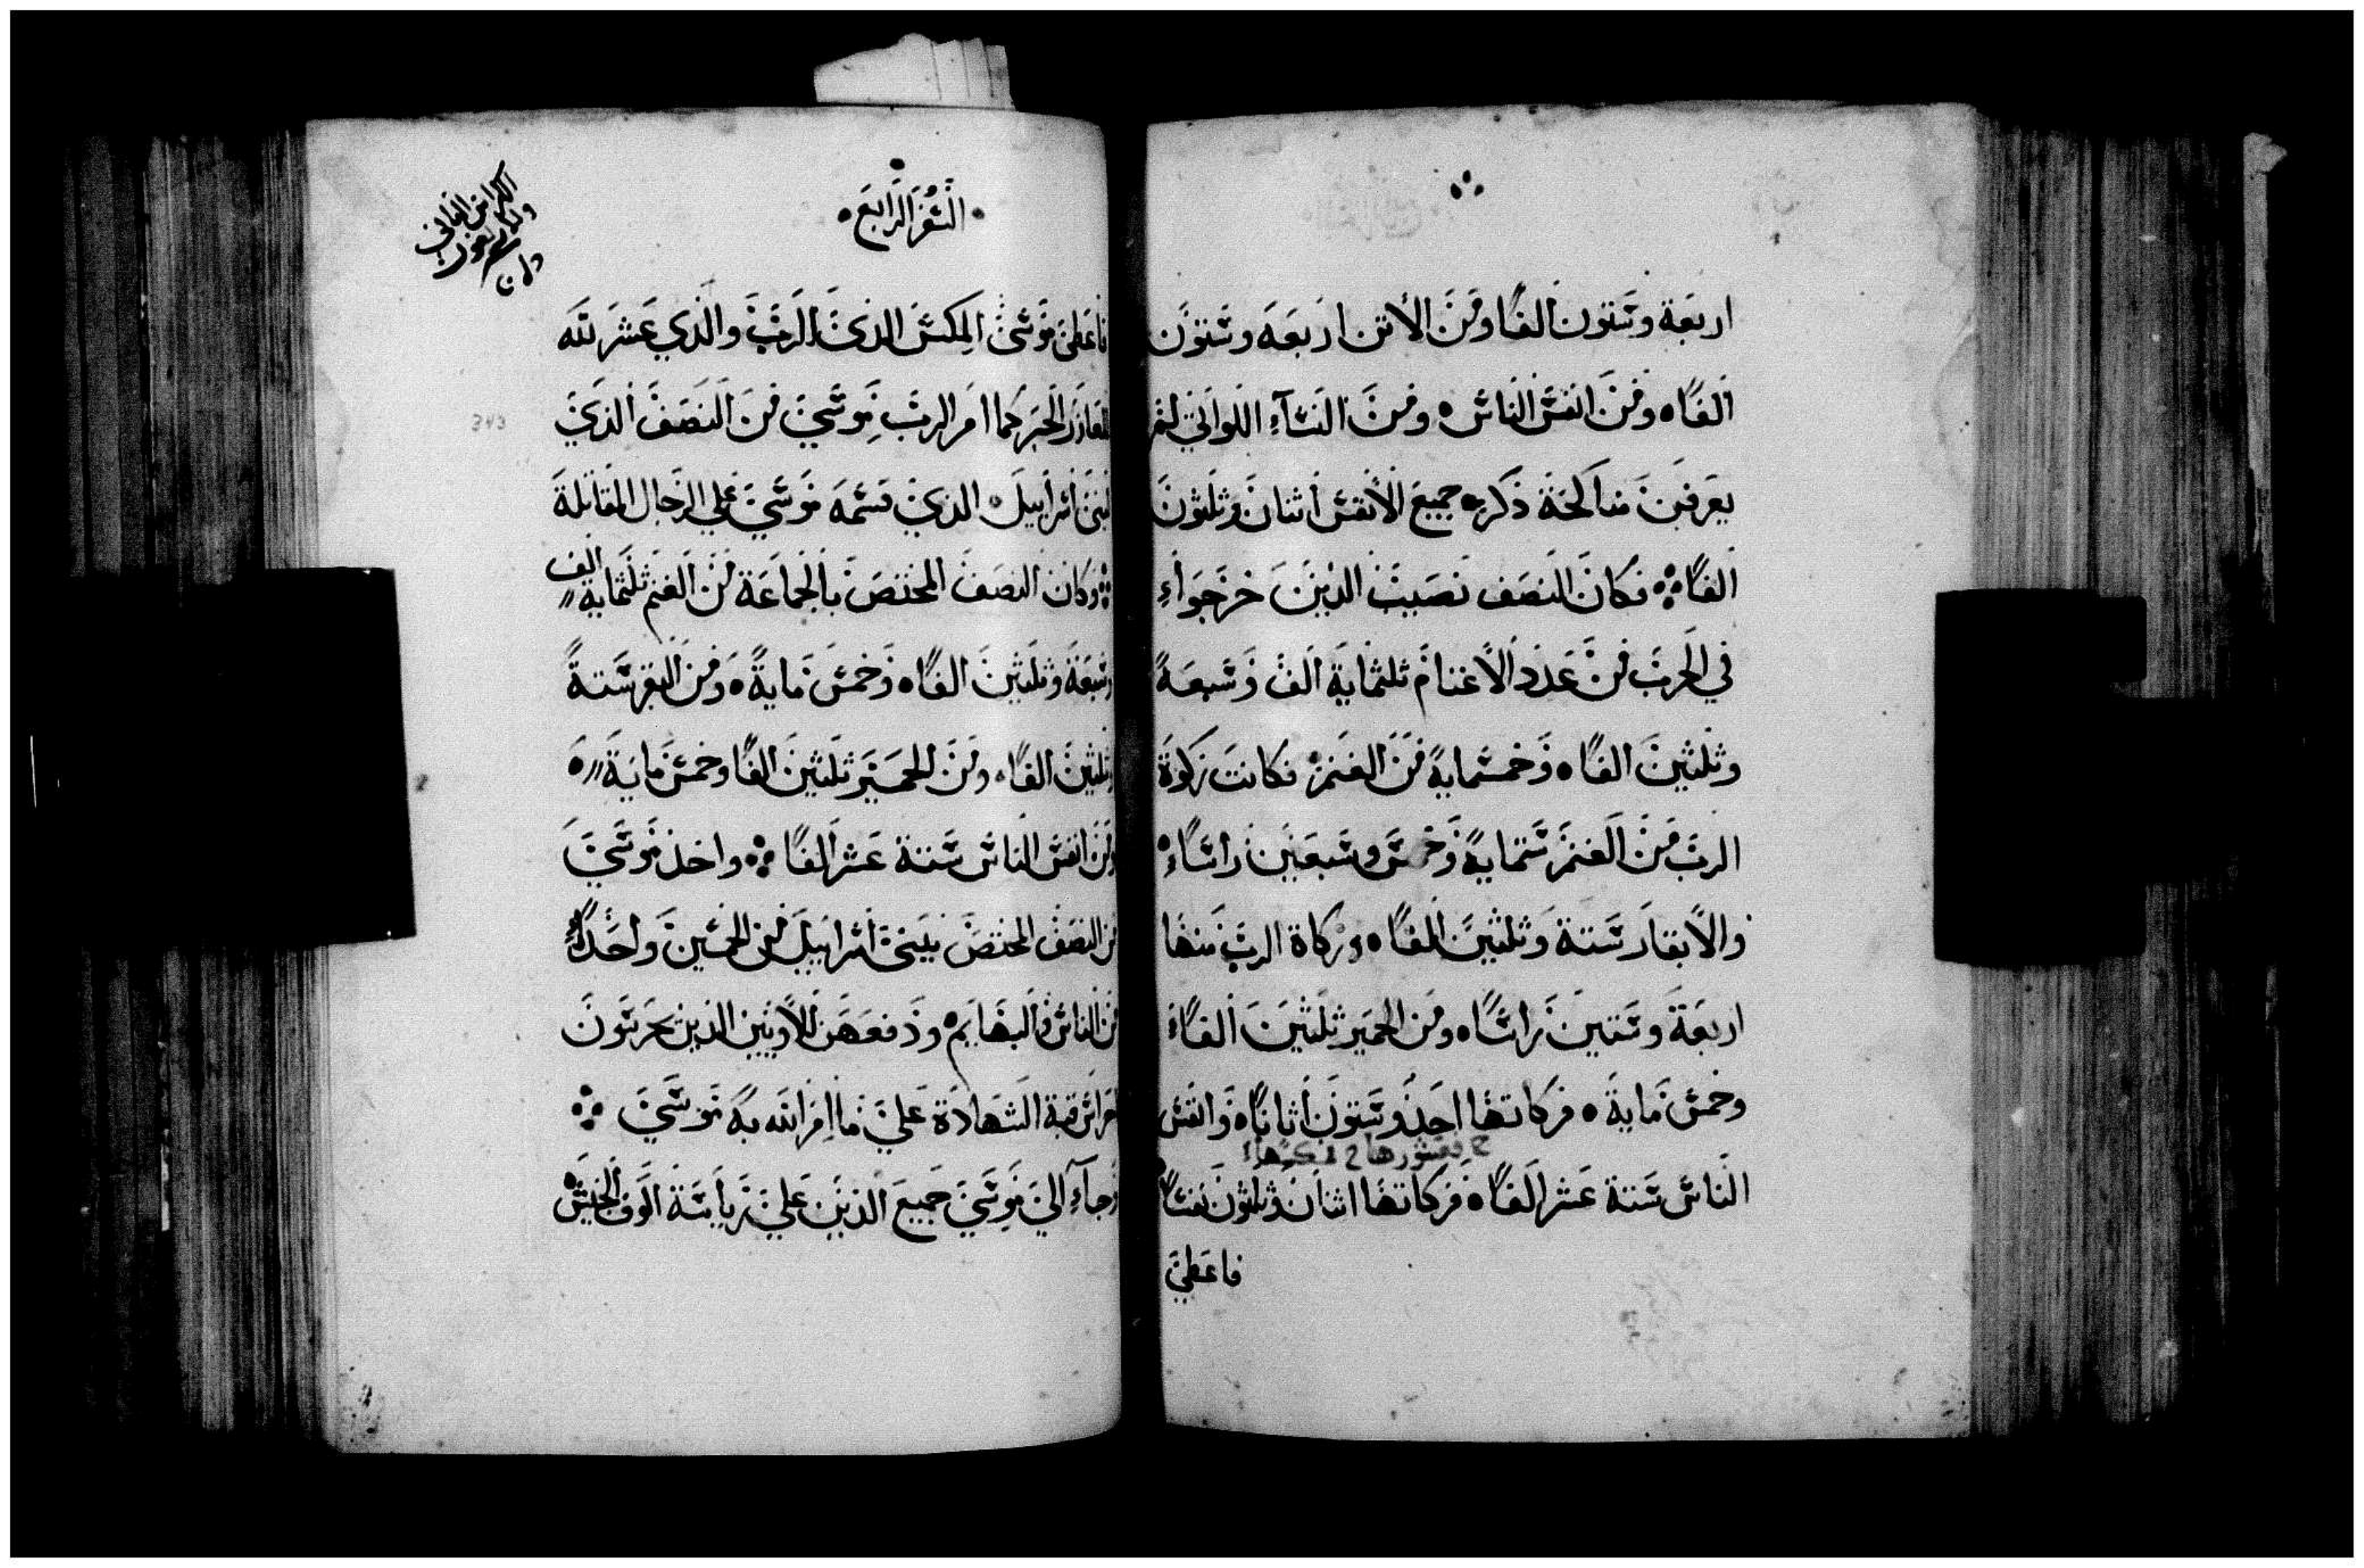 اربعة وستون الفا ومن الاتن اربعه وستون
الفا ومن انفس الناس ومن النسآء اللواتي لم
يعرفن مناكحة ذكر جميع الأنفس اثنان وثلثون
الفا فكان النصف نصيب الذين خرجوا
في الحرب من عدد الاغنام ثلثماية الف وسبعة
وثلثين الفا وخمسماية من الغنم فكانت زكوة
الرب من الغنم ستماية وخمس وسبعين راسا
والابقار ستة وثلثين الفا وزكاة الرب منها
اربعة وستين راسا ومن الحمير ثلثين الفا
وخمس ماية فزكاتها احد وستون اثانا وانفس
الناس ستة عشر الفا فزكاتها اثنان وثلثون نفسا
فاعطي
السفر الرابع
الكراس الثاني
فاعطى موسى المكس الذى للرب والذي عشر لله
للعازر الحبر كما امر الرب موسي من النصف الذي
لبنى اسرابيل الذي قسمه موسي علي الرجال المقاتلة
وكان النصف المختص بالجماعة من الغنم ثلثماية الف
وسبعة وثلثين الفا وخمس ماية ومن البقر ستة
وثلثين الفا ومن الحمير ثلثين الفا وخمس ماية
ومن انفس الناس ستة عشر الفا واخذ موسي
من النصف المختص ببنى اسرابيل من الخمسين واحدا
من الناس والبهايم ودفعهن للاويين الذين يحرسون
حراس قبة الشهادة علي ما امر الله به موسي
وجآء الي موسي جميع الذين علي رياسة الوف الجيش